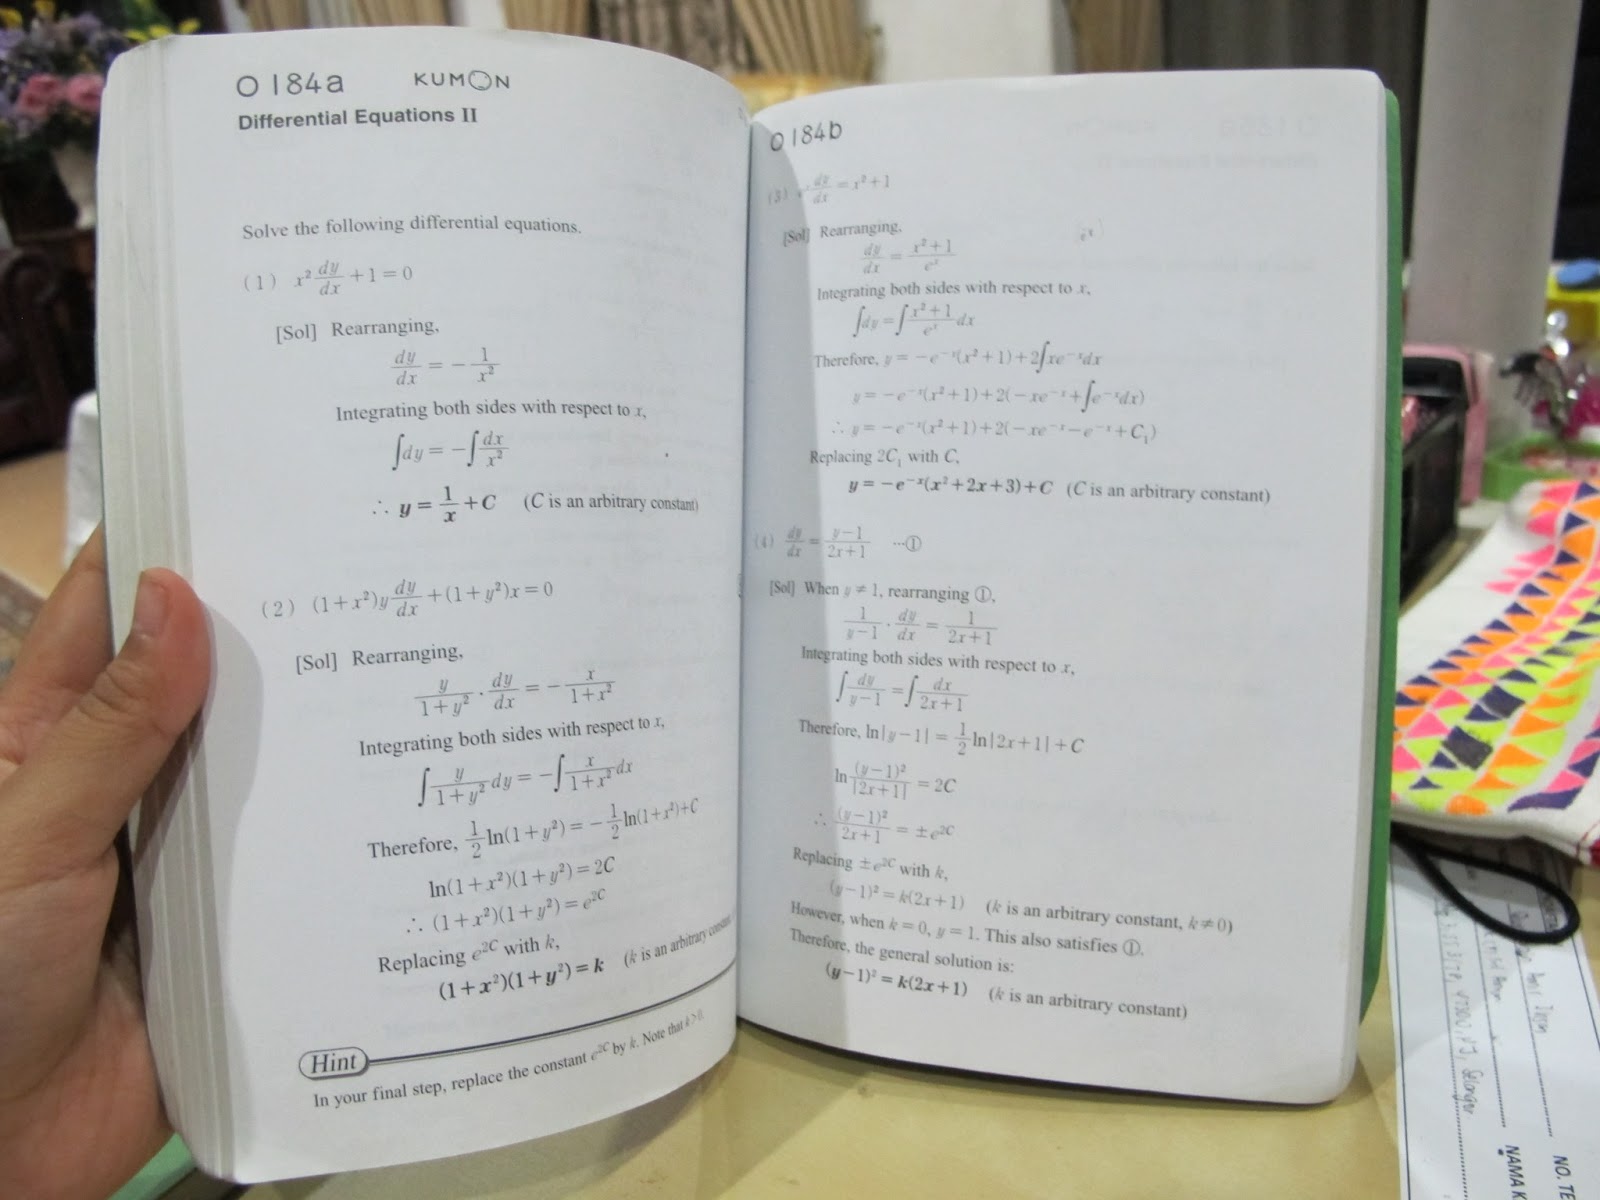 O 184a KUMON
Differential Equations II
Solve the following differential equations.
(1) x² dy/dx + 1 = 0
[Sol] Rearranging,
dy/dx = − 1/x²
Integrating both sides with respect to x,
∫dy = −∫dx/x²
∴ y = 1/x + C (C is an arbitrary constant)
(2) (1+x²)y dy/dx + (1+y²)x = 0
[Sol] Rearranging,
y/(1+y²) · dy/dx = − x/(1+x²)
Integrating both sides with respect to x,
∫ y/(1+y²) dy = −∫ x/(1+x²) dx
Therefore, 1/2 ln(1+y²) = − 1/2 ln(1+x²)+C
ln(1+x²)(1+y²) = 2C
∴ (1+x²)(1+y²) = e^2C
Replacing e^2C with k,
(1+x²)(1+y²) = k (k is an arbitrary
Hint
In your final step, replace the constant e^2C by k. Note that k>0.
O 184b
(3) dy/dx = x²+1
[Sol] Rearranging,
dy/dx = (x²+1)/e^x
Integrating both sides with respect to x,
∫dy = ∫(x²+1)/e^x dx
Therefore, y = −e^−x(x²+1)+2∫xe^−x dx
y = −e^−x(x²+1)+2(−xe^−x+∫e^−x dx)
∴ y = −e^−x(x²+1)+2(−xe^−x−e^−x+C₁)
Replacing 2C₁ with C,
y = −e^−x(x²+2x+3)+C (C is an arbitrary constant)
(4) dy/dx = (y−1)/(2x+1) ···①
[Sol] When y ≠ 1, rearranging ①,
1/(y−1) · dy/dx = 1/(2x+1)
Integrating both sides with respect to x,
∫dy/(y−1) = ∫dx/(2x+1)
Therefore, ln|y−1| = 1/2 ln|2x+1|+C
ln (y−1)²/|2x+1| = 2C
∴ (y−1)²/(2x+1) = ±e^2C
Replacing ±e^2C with k,
(y−1)² = k(2x+1) (k is an arbitrary constant, k≠0)
However, when k = 0, y = 1. This also satisfies ①.
Therefore, the general solution is:
(y−1)² = k(2x+1) (k is an arbitrary constant)
Selangor
NAMA
NO. TE